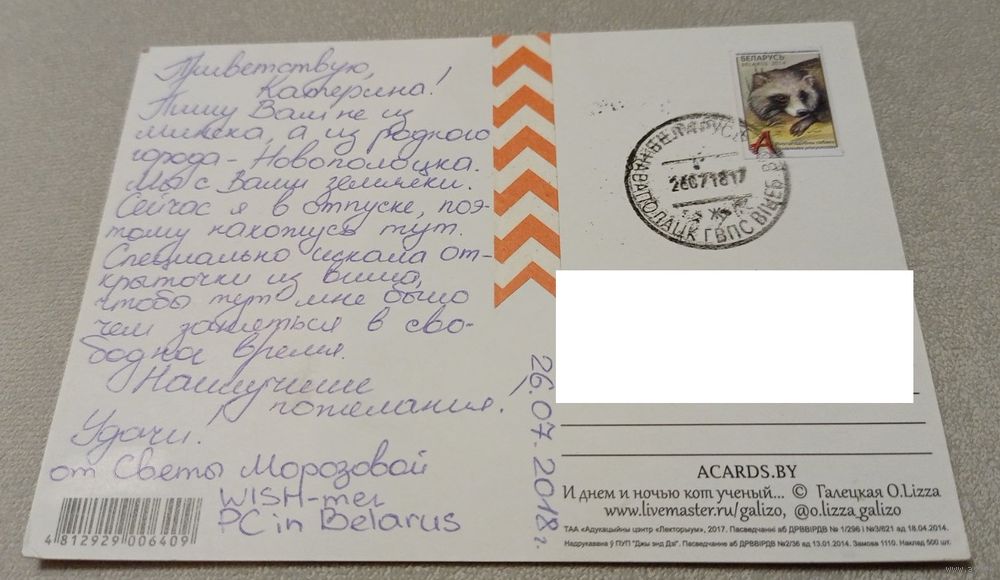 Приветствую,
Катерина!
Пишу Вам не из
Минска, а из родного
города - Новополоцка.
Мы с Вами земляки.
Сейчас я в отпуске, поэ-
тому нахожусь тут.
Специально искала от-
крыточки из виша,
чтобы тут мне было
чем заняться в сво-
бодна время.
Наилучшие
пожелания!
Удачи!
от Светы Морозовой
WISH-mer
PC in Belarus
4 812929 006409
26.07.2018 г.
БЕЛАРУСЬ
BELARUS 2014
A
БЕЛАРУСЬ
26071817
НАВАПОЛАЦК ГВПС ВІЦЕБ
ACARDS.BY
И днем и ночью кот ученый... © Галецкая O.Lizza
www.livemaster.ru/galizo, @o.lizza_galizo
ТАА «Адукацыйны цэнтр «Лекторыум», 2017. Пасведчанні аб ДРВВІРДВ № 1/296 і №3/621 ад 18.04.2014.
Надрукавана ў ПУП "Джы энд Дзі". Пасведчанне аб ДРВВІРДВ №2/36 ад 13.01.2014. Замова 1110. Наклад 500 шт.